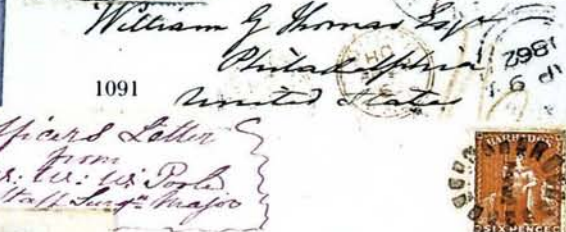 William G Thomas Esqr
Philadelphia
United States
1091
Officers Letter
from
W: W: Poole
Staff Surgn Major
1862
BARBADOS
SIX PENCE